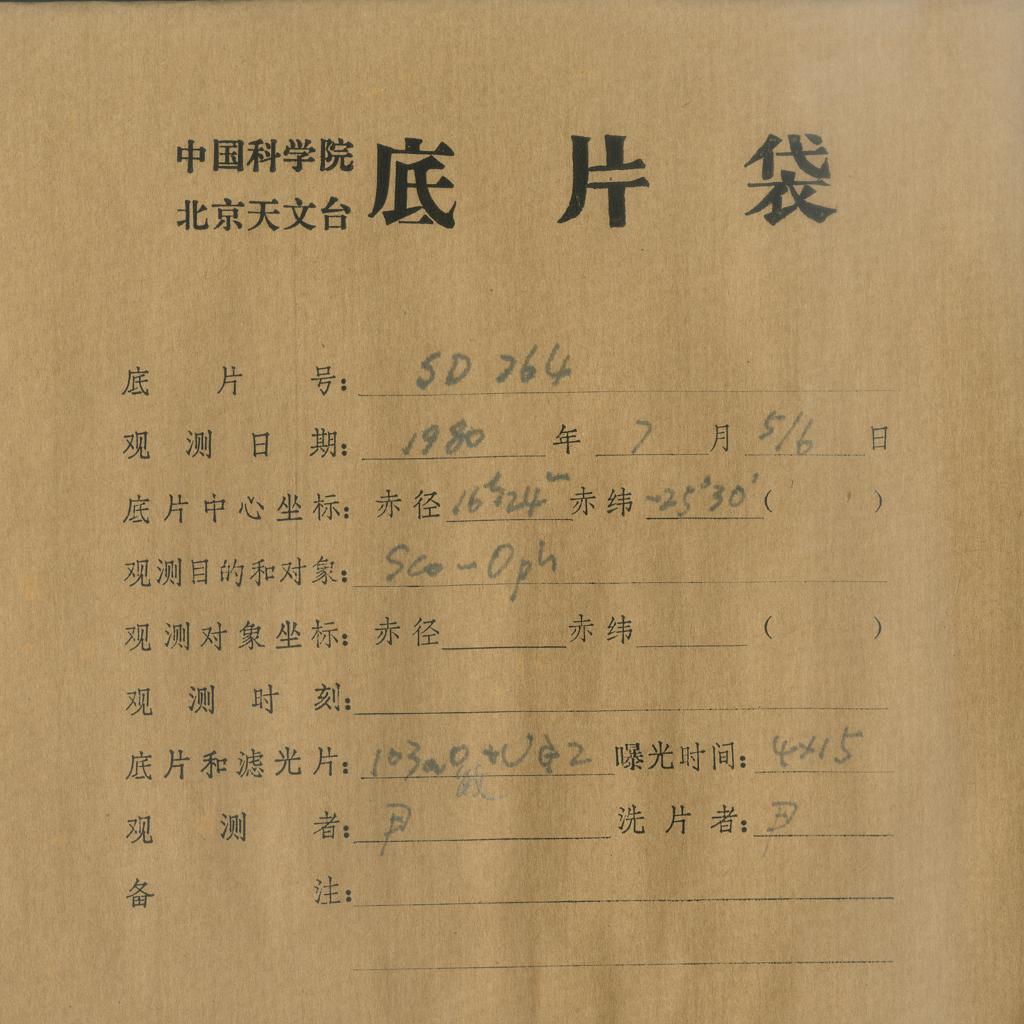 中国科学院
北京天文台
底片袋
底片号: SD 264
观测日期: 1980 年 7 月 5/6 日
底片中心坐标: 赤径 16h24m 赤纬 -25°30′ ( )
观测目的和对象: Sco-Oph
观测对象坐标: 赤径 赤纬 ( )
观测时刻:
底片和滤光片: 103aO+UG2 曝光时间: 4×15
观测者: 洗片者:
备注: